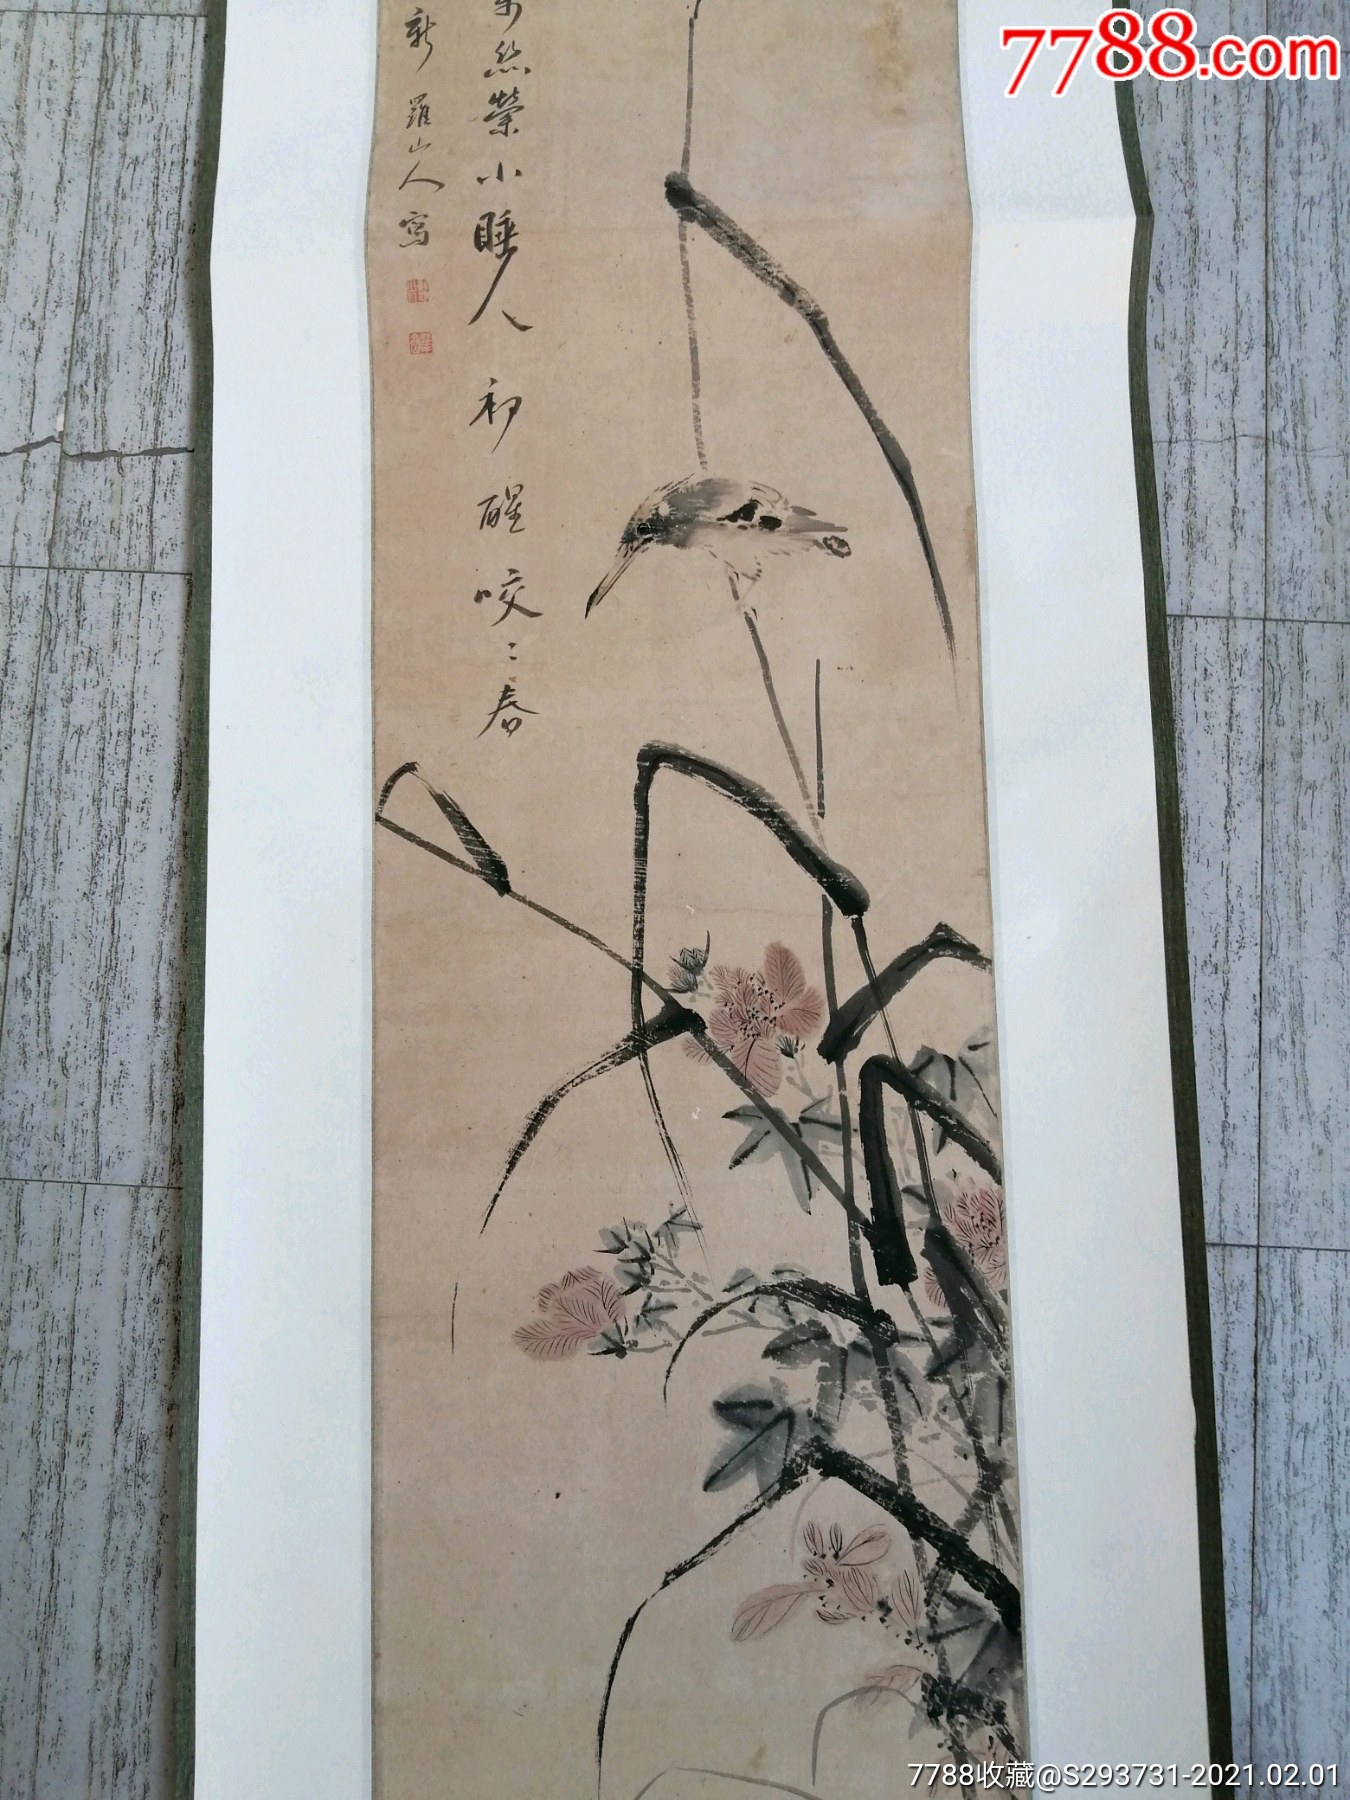 7788.com
絲縈小睡人初醒咬〻春
新羅山人寫
7788收藏@S293731-2021.02.01